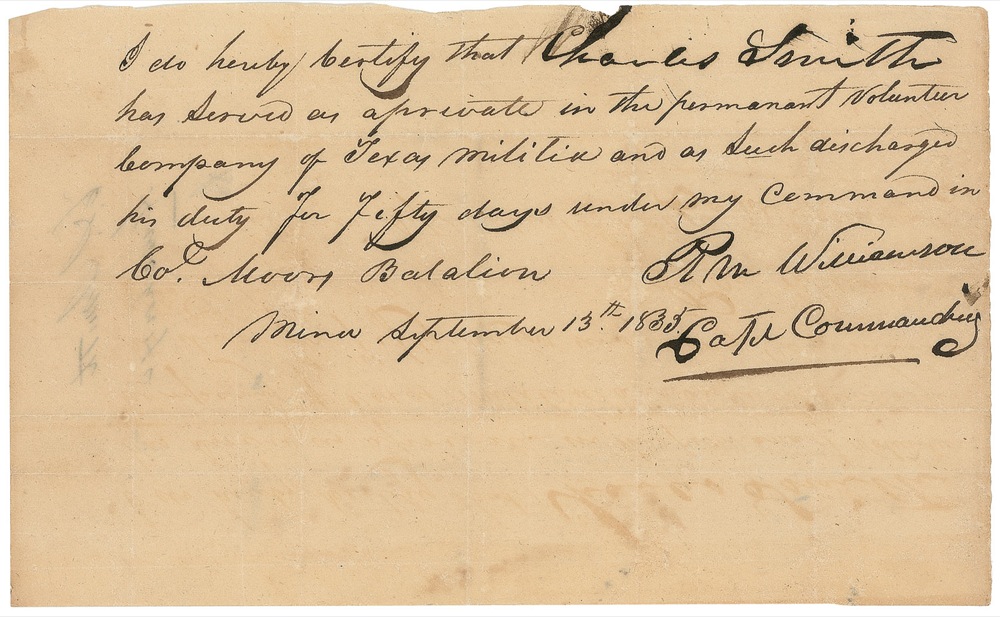 I do hereby Certify that Charles Smith
has Served as aprivate in the permanant Volunteer
Company of Texas militia and as Such discharged
his duty for Fifty days under my Command in
Col. Moors Batalion R M Williamson
Mina September 13th. 1835 Capt Commanding